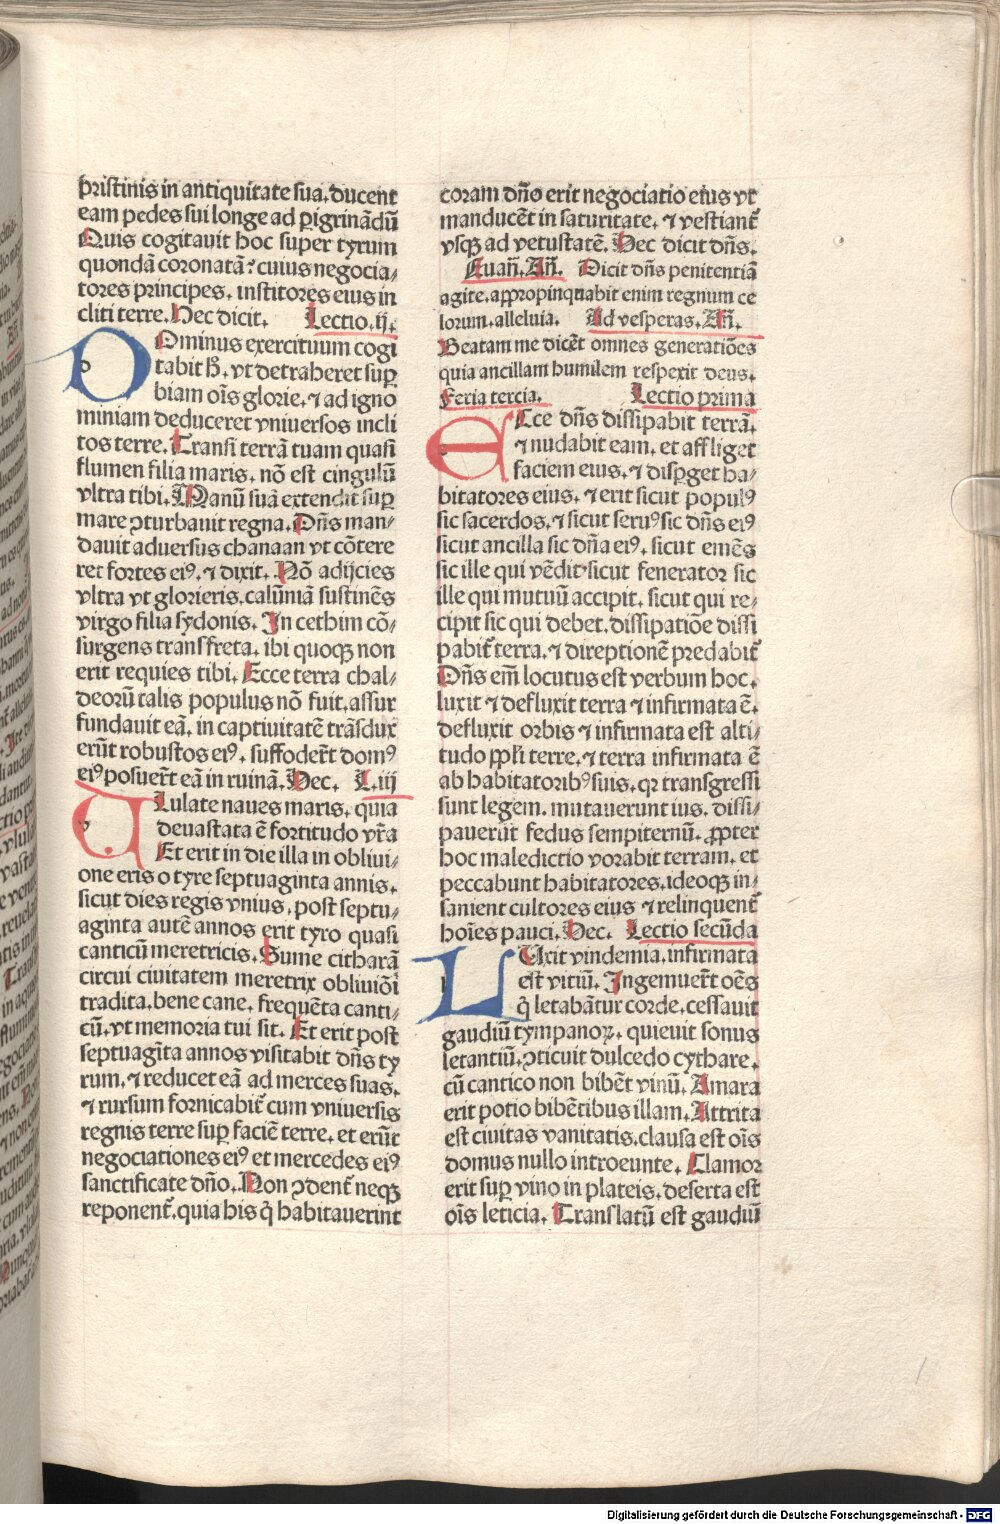 pristinis in antiquitate sua. ducent
eam pedes sui longe ad ꝑigrinādū
Quis cogitauit hoc super tyrum
quondā coronatā? cuius negocia⸗
tores principes. institores eius in
cliti terre. Hec dicit. Lectio. ij.
DOminus exercituum cogi
tabit h̄. vt detraheret suꝑ
biam oīs glorie. ⁊ ad igno
miniam deduceret vniuersos incli
tos terre. Transi terrā tuam quasi
flumen filia maris. nō est cingulū
vltra tibi. Manū suā extendit suꝑ
mare ꝯturbauit regna. Dn̄s man⸗
dauit aduersus chanaan vt cōtere
ret fortes eiꝰ. ⁊ dixit. Nō adijcies
vltra vt glorieris. calūniā sustinēs
virgo filia sydonis. In cethim cō⸗
surgens transfreta. ibi quoqꝫ non
erit requies tibi. Ecce terra chal⸗
deorū talis populus nō fuit. assur
fundauit eā. in captiuitatē trāsdux
erūt robustos eiꝰ. suffoder̄t domꝰ
eiꝰ posuer̄t eā in ruinā. Hec. L. iij
VLulate naues maris. quia
deuastata ē fortitudo vr̄a
Et erit in die illa in obliui⸗
one eris o tyre septuaginta annis.
sicut dies regis vnius. post septu⸗
aginta autē annos erit tyro quasi
canticū meretricis. Sume citharā
circui ciuitatem meretrix obliuiōi
tradita. bene cane. frequēta canti⸗
cū. vt memoria tui sit. Et erit post
septuagīta annos visitabit dn̄s ty
rum. ⁊ reducet eā ad merces suas.
⁊ rursum fornicabit᷑ cum vniuersis
regnis terre suꝑ faciē terre. et erūt
negociationes eiꝰ et mercedes eiꝰ
sanctificate dn̄o. Non ꝯdent᷑ neqꝫ
reponent᷑. quia his q̄ habitauerint
coram dn̄o erit negociatio eius vt
manducēt in saturitate. ⁊ vestiant᷑
vsqꝫ ad vetustatē. Hec dicit dn̄s.
Euan̄. An̄. Dicit dn̄s penitentiā
agite. appropinquabit enim regnum ce
lorum. alleluia. Ad vesperas. An̄.
Beatam me dicēt omnes generatiōes
quia ancillam humilem respexit deus.
Feria tercia. Lectio prima
ECce dn̄s dissipabit terrā.
⁊ nudabit eam. et affliget
faciem eius. ⁊ disꝑget ha⸗
bitatores eius. ⁊ erit sicut populꝰ
sic sacerdos. ⁊ sicut seruꝰ sic dn̄s eiꝰ
sicut ancilla sic dn̄a eiꝰ. sicut emēs
sic ille qui vēdit. sicut fenerator sic
ille qui mutuū accipit. sicut qui re⸗
cipit sic qui debet. dissipatiōe dissi
pabit᷑ terra. ⁊ direptionē predabit᷑
Dn̄s em̄ locutus est verbum hoc.
luxit ⁊ defluxit terra ⁊ infirmata ē.
defluxit orbis ⁊ infirmata est alti⸗
tudo ppl̄i terre. ⁊ terra infirmata ē
ab habitatoribꝰ suis. qꝛ transgressi
sunt legem. mutauerunt ius. dissi⸗
pauerūt fedus sempiternū. ꝓpter
hoc maledictio vorabit terram. et
peccabunt habitatores. ideoqꝫ in⸗
sanient cultores eius ⁊ relinquent᷑
hoīes pauci. Hec. Lectio secūda
LUxit vindemia. infirmata
est vitiū. Ingemuer̄t oēs
q̄ letabātur corde. cessauit
gaudiū tympanoꝝ. quieuit sonus
letantiū. ꝯticuit dulcedo cythare.
cū cantico non bibēt vinū. Amara
erit potio bibētibus illam. Attrita
est ciuitas vanitatis. clausa est oīs
domus nullo introeunte. Clamor
erit suꝑ vino in plateis. deserta est
oīs leticia. Translatū est gaudiū
Digitalisierung gefördert durch die Deutsche Forschungsgemeinschaft - DFG